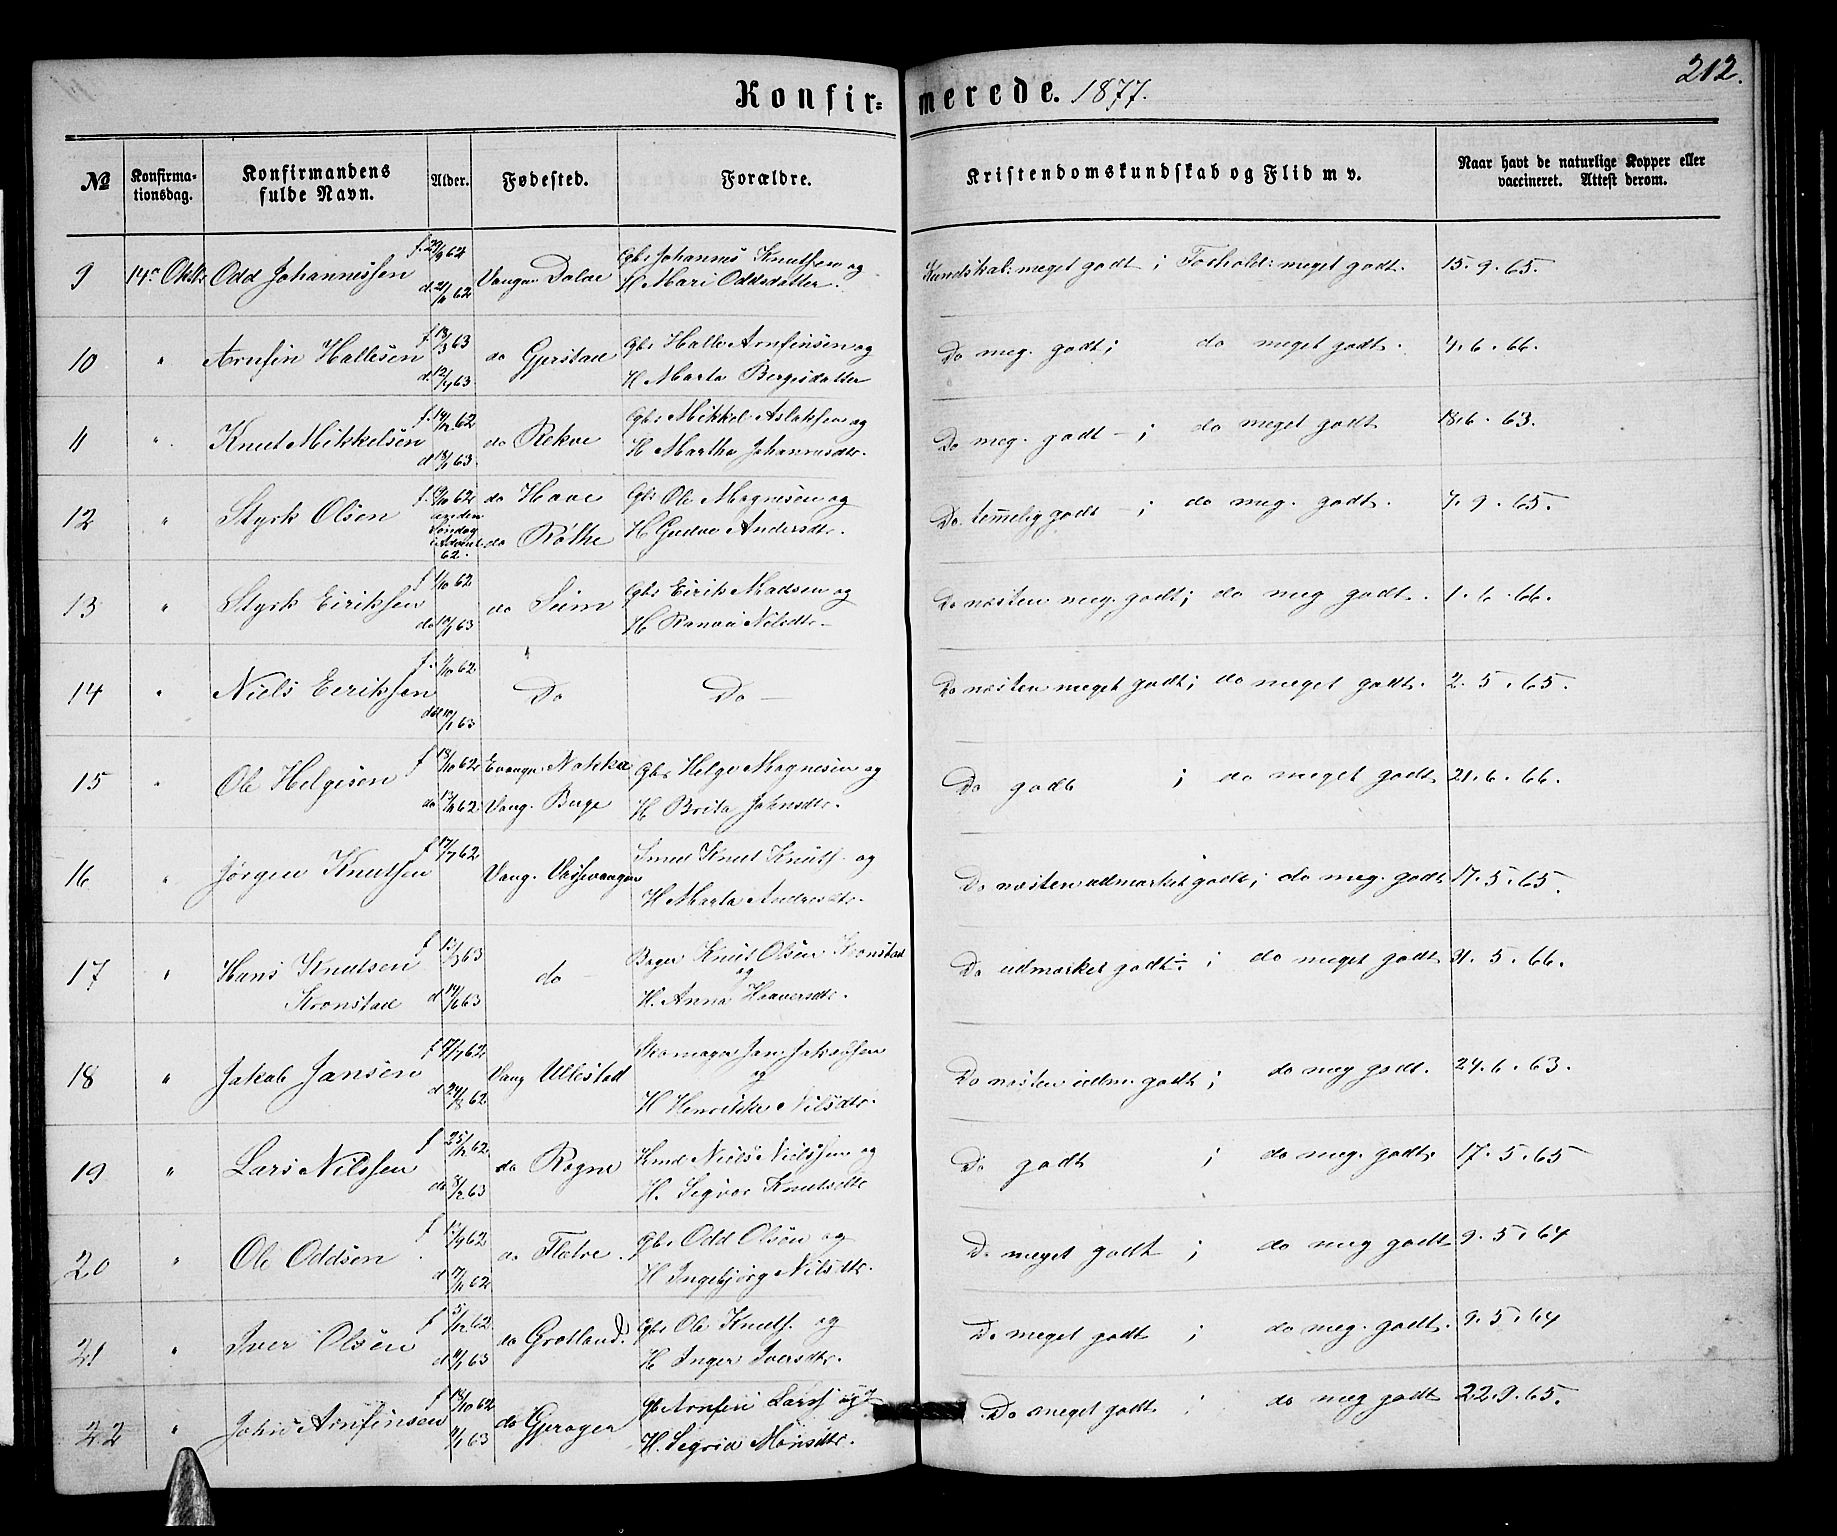 212.
Konfir- merede. 1877.
№ Konfirma-tionsdag. Konfirmandens fulde Navn. Alder. Fødested. Forældre. Kristendomskundskab og Flid m v. Naar havt de naturlige Kopper eller vaccineret. Attest derom.
9 14de Oktr Odd Johannessen f. 29/9 62 Vangen Dolve Gbr Johannes Knutsen og Kundskab: meget godt ; Forhold: meget godt. 15. 9. 65.
d. 62 H Mari Oddsdatter.
10 " Arnfin Hallesen f 13/3 63 do Gjerstad Gbr Halle Arnfinsen og Do meg. godt ; do meget godt. 7. 6. 66.
d. 12/4 63. H Marta Bergesdatter
11 " Knut Mikkelsen f. 14/12 62 do Rekve Gbr Mikkel Aslaksen og Do meg. godt - ; do meget godt 18. 6. 63.
d 18/1 63. H Martha Johannesdtr.
12 " Styrk Olsen f. 62 do Hove Gbr Ole Magnesen og Do temmelig godt - ; do meg. godt. 7. 9. 65.
anden Søndag i Advent 62. do Røthe H Gudve Andersdtr.
13 " Styrk Eiriksen f 1/10 62 do Seim Gbr Eirik Madsen og Do næsten meg. godt ; do meg godt. 1. 6. 66.
do 10/1 63 H Ranvei Nilsdtr -
14 " Niels Eeriksen f. 1/10 62 Do Do - Do næsten meget godt ; do meget godt. 2. 5. 65.
døb 10/1 63
15 " Ole Helgesen f 18/10 62 Evangr. Nokka Gbr Helge Magnesen og Do godt ; do meget godt 21. 6. 66.
do 13/11 62 Vang. Berge H Brita Johnsdtr.
16 " Jørgen Knutsen f 17/7 62 Vang. Vossevangen Smed Knut Knuts. og Do næsten udmærket godt ; do meg. godt 17. 5. 65.
H Marta Andersdtr.
17 " Hans Knutsen f 13/3 63 do - Bager Knut Olsen Kronstad og Do udmærket godt ÷ ; do meget godt 31. 5. 66.
Kronstad d 14/6 63 H. Anna Haaversdtr.
18 " Jakob Jansen f 17/7 62 Vang Ullestad Skomager Jan Jakobsen og Do næsten udm. godt ; do meg godt. 24. 6. 63.
d 24/8 62 H Henrikke Nilsdtr.
19 " Lars Nilssen f 25/12 62. do Rogne Hmd Niels Nielssen og Do godt ; do meg. godt. 17. 5. 65
do 8/2 63 H. Sigvor Knutsdtr
20 " Ole Oddsen f 12/9 62 do Flatve. Gbr Odd Olsen og Do meget godt ; do meg godt 9. 5. 64
d 62 H Ingebjørg Nilsdtr.
21 " Iver Olsen f 5/12 62. do Grotland. Gbr Ole Knuts. og Do meget godt ; do meg. godt. 9. 5. 64
d 11/1 63 H Inger Iversdtr.
22 " John Arnfinsen f 18/10 62 do Gjerager Gbr Arnfin Larss og Do meget godt ; do meg godt 22. 9. 65.
11/1 63 H. Sigrid Monsdtr.